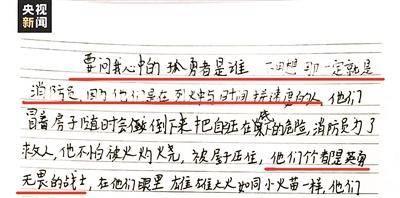 央视新闻
要问我心中的孤勇者是谁 一回想 那一定就是
消防员,因为他们是在烈火中与时间拼速度的人,他们
冒着房子随时会倒下来把自己压在底下的危险,消防员为了
救人,他不怕被火灼烧,被房子压住,他们个都是英勇
无畏的战士,在他们眼里雄雄大火如同小火苗一样,他们